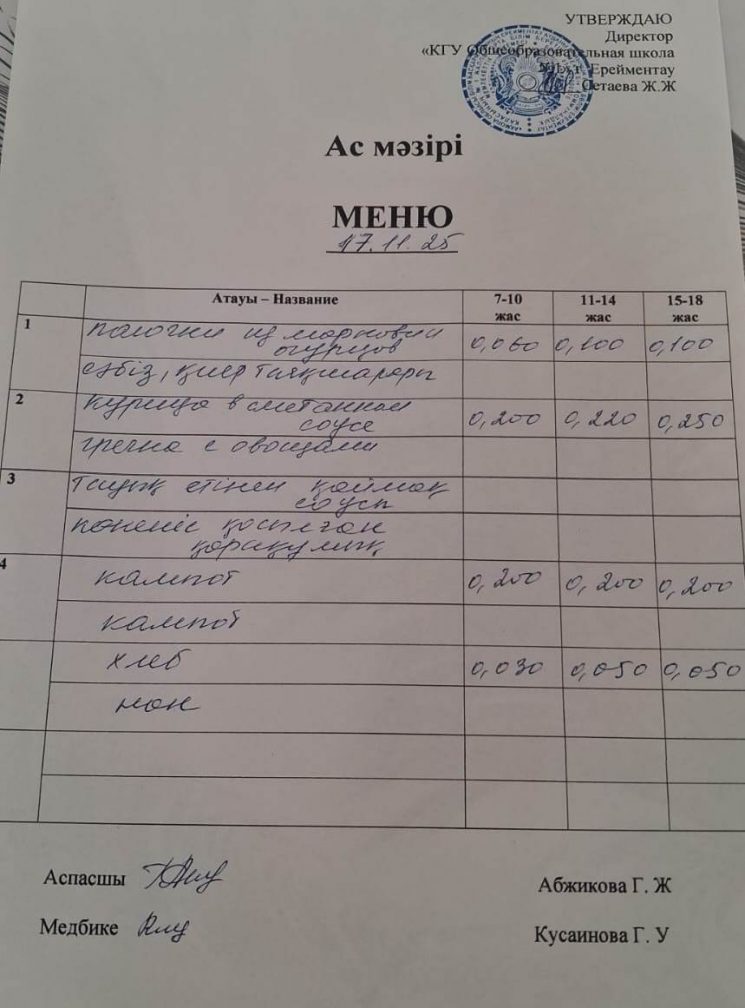 УТВЕРЖДАЮ
Директор
«КГУ Общеобразовательная школа
№1» г. Ерейментау
Сетаева Ж.Ж
Ас мәзірі
МЕНЮ
17.11.25
Атауы – Название 7-10 жас 11-14 жас 15-18 жас
1 палочки из моркови и
огурцов 0,060 0,100 0,100
сәбіз, қияр таяқшалары
2 курица в сметанном
соусе 0,200 0,220 0,250
гречка с овощами
3 Тауық етінен қаймақ
соусы
көкөніс қосылған
қарақұмық
4 кампот 0,200 0,200 0,200
кампот
хлеб 0,030 0,050 0,050
нан
Аспасшы Абжикова Г. Ж
Медбике Кусаинова Г. У